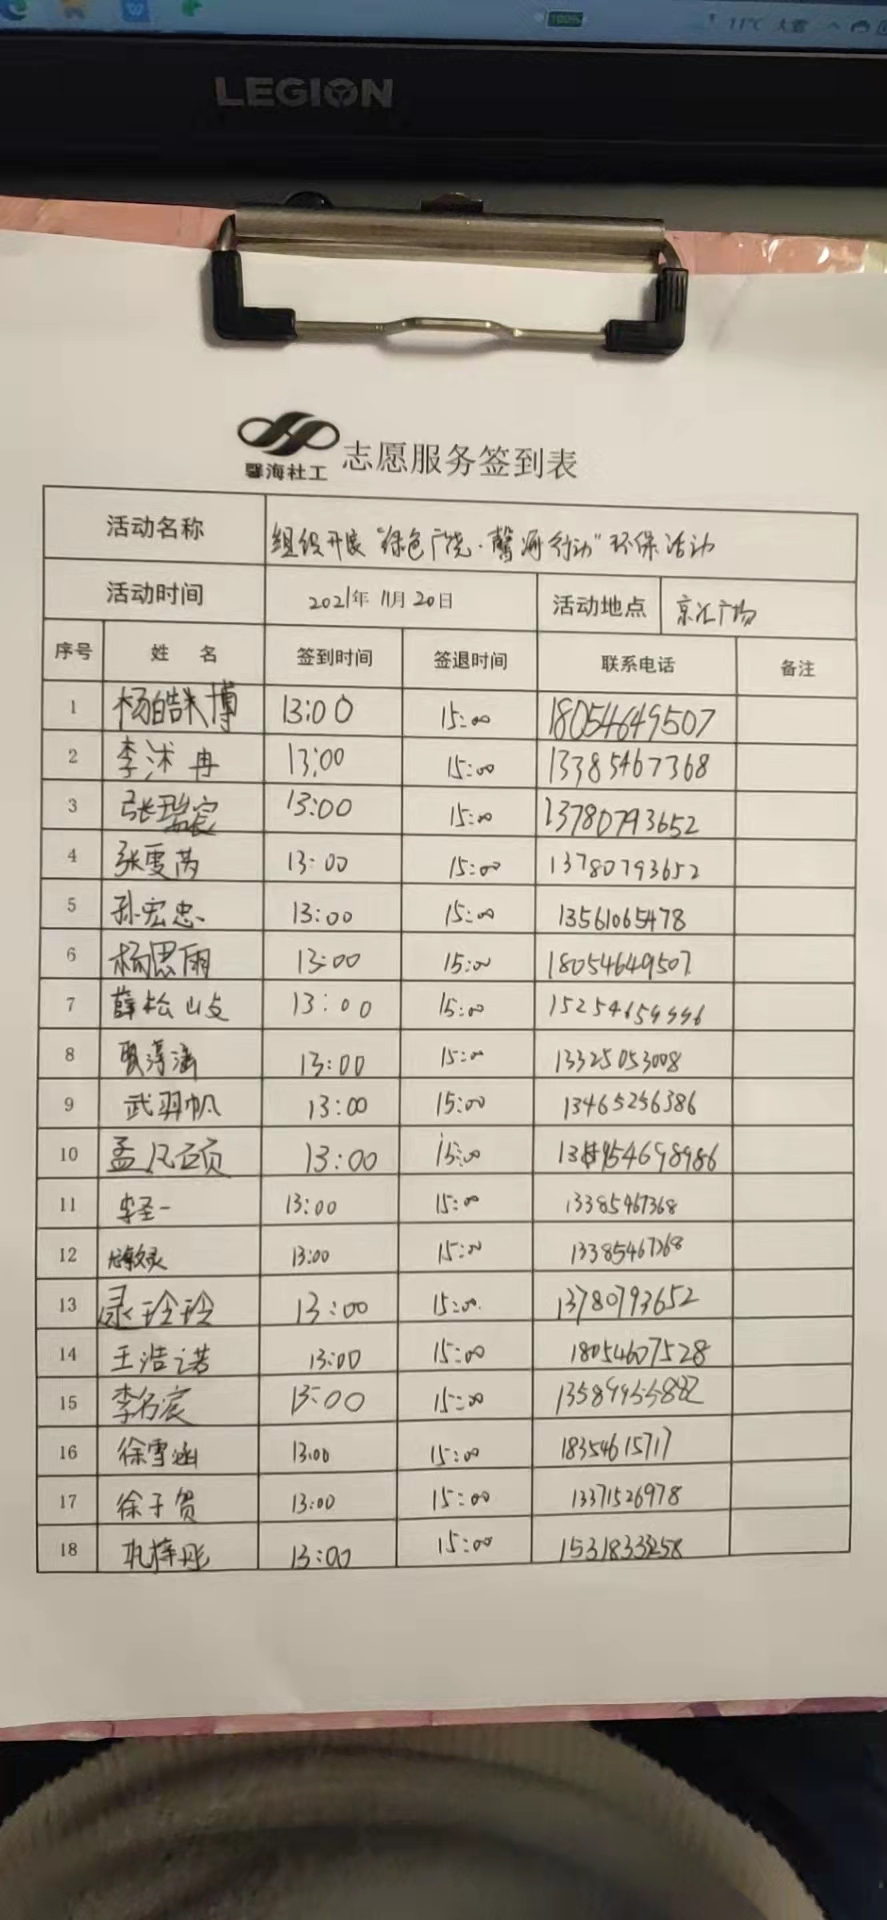 100%
11℃ 大雾
LEGION
馨海社工 志愿服务签到表
活动名称 组织开展"绿色广饶·馨海行动"环保活动
活动时间 2021年11月20日 活动地点 京汇广场
序号 姓 名 签到时间 签退时间 联系电话 备注
1 杨皓博 13:00 15:00 18054649507
2 李沭冉 13:00 15:00 13385467368
3 张瑞宸 13:00 15:00 13780793652
4 张雯芮 13:00 15:00 13780793652
5 孙宏忠 13:00 15:00 13561065478
6 杨思雨 13:00 15:00 18054649507
7 薛松岐 13:00 15:00
8 13:00 15:00 13325053008
9 武羿帆 13:00 15:00 13465256386
10 孟凡硕 13:00 15:00
11 李圣一 13:00 15:00 13385467368
12 13:00 15:00 13385467368
13 玲玲 13:00 15:00 13780793652
14 王浩诺 13:00 15:00 18054607528
15 李名宸 13:00 15:00
16 徐雪涵 13:00 15:00 18354615717
17 徐子贺 13:00 15:00 13371526978
18 巩梓彤 13:00 15:00